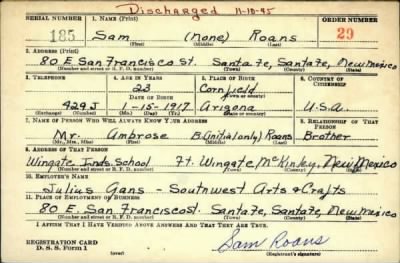 Discharged 11-10-45
SERIAL NUMBER 1. NAME (Print) ORDER NUMBER
185 Sam (none) Roans 29
(First) (Middle) (Last)
2. ADDRESS (Print)
80 E. San Francisco St. Santa Fe, Santa Fe, New Mexico
(Number and street or R. F. D. number) (Town) (County) (State)
3. TELEPHONE 4. AGE IN YEARS 5. PLACE OF BIRTH 6. COUNTRY OF CITIZENSHIP
23 Cornfield
DATE OF BIRTH (Town or county)
429 J 1-15-1917 Arizona U.S.A.
(Exchange) (No.) (Mo.) (Day) (Yr.) (State or country)
7. NAME OF PERSON WHO WILL ALWAYS KNOW YOUR ADDRESS 8. RELATIONSHIP OF THAT PERSON
Mr. Ambrose B. (initial only) Roans Brother
(Mr., Mrs., Miss) (First) (Middle) (Last)
9. ADDRESS OF THAT PERSON
Wingate Inds. School Ft. Wingate McKinley, New Mexico
(Number and street or R. F. D. number) (Town) (County) (State)
10. EMPLOYER'S NAME
Julius Gans - Southwest Arts & Crafts
11. PLACE OF EMPLOYMENT OR BUSINESS
80 E. San Francisco St. Santa Fe, Santa Fe, New Mexico
(Number and street or R. F. D. number) (Town) (County) (State)
I AFFIRM THAT I HAVE VERIFIED ABOVE ANSWERS AND THAT THEY ARE TRUE.
REGISTRATION CARD
D. S. S. Form 1
Sam Roans
(Registrant's signature)